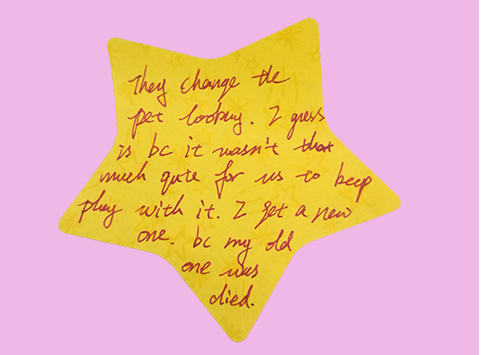 They change the
pet looking. I guess
is bc it wasn't that
much qute for us to keep
play with it. I get a new
one. bc my old
one was
died.